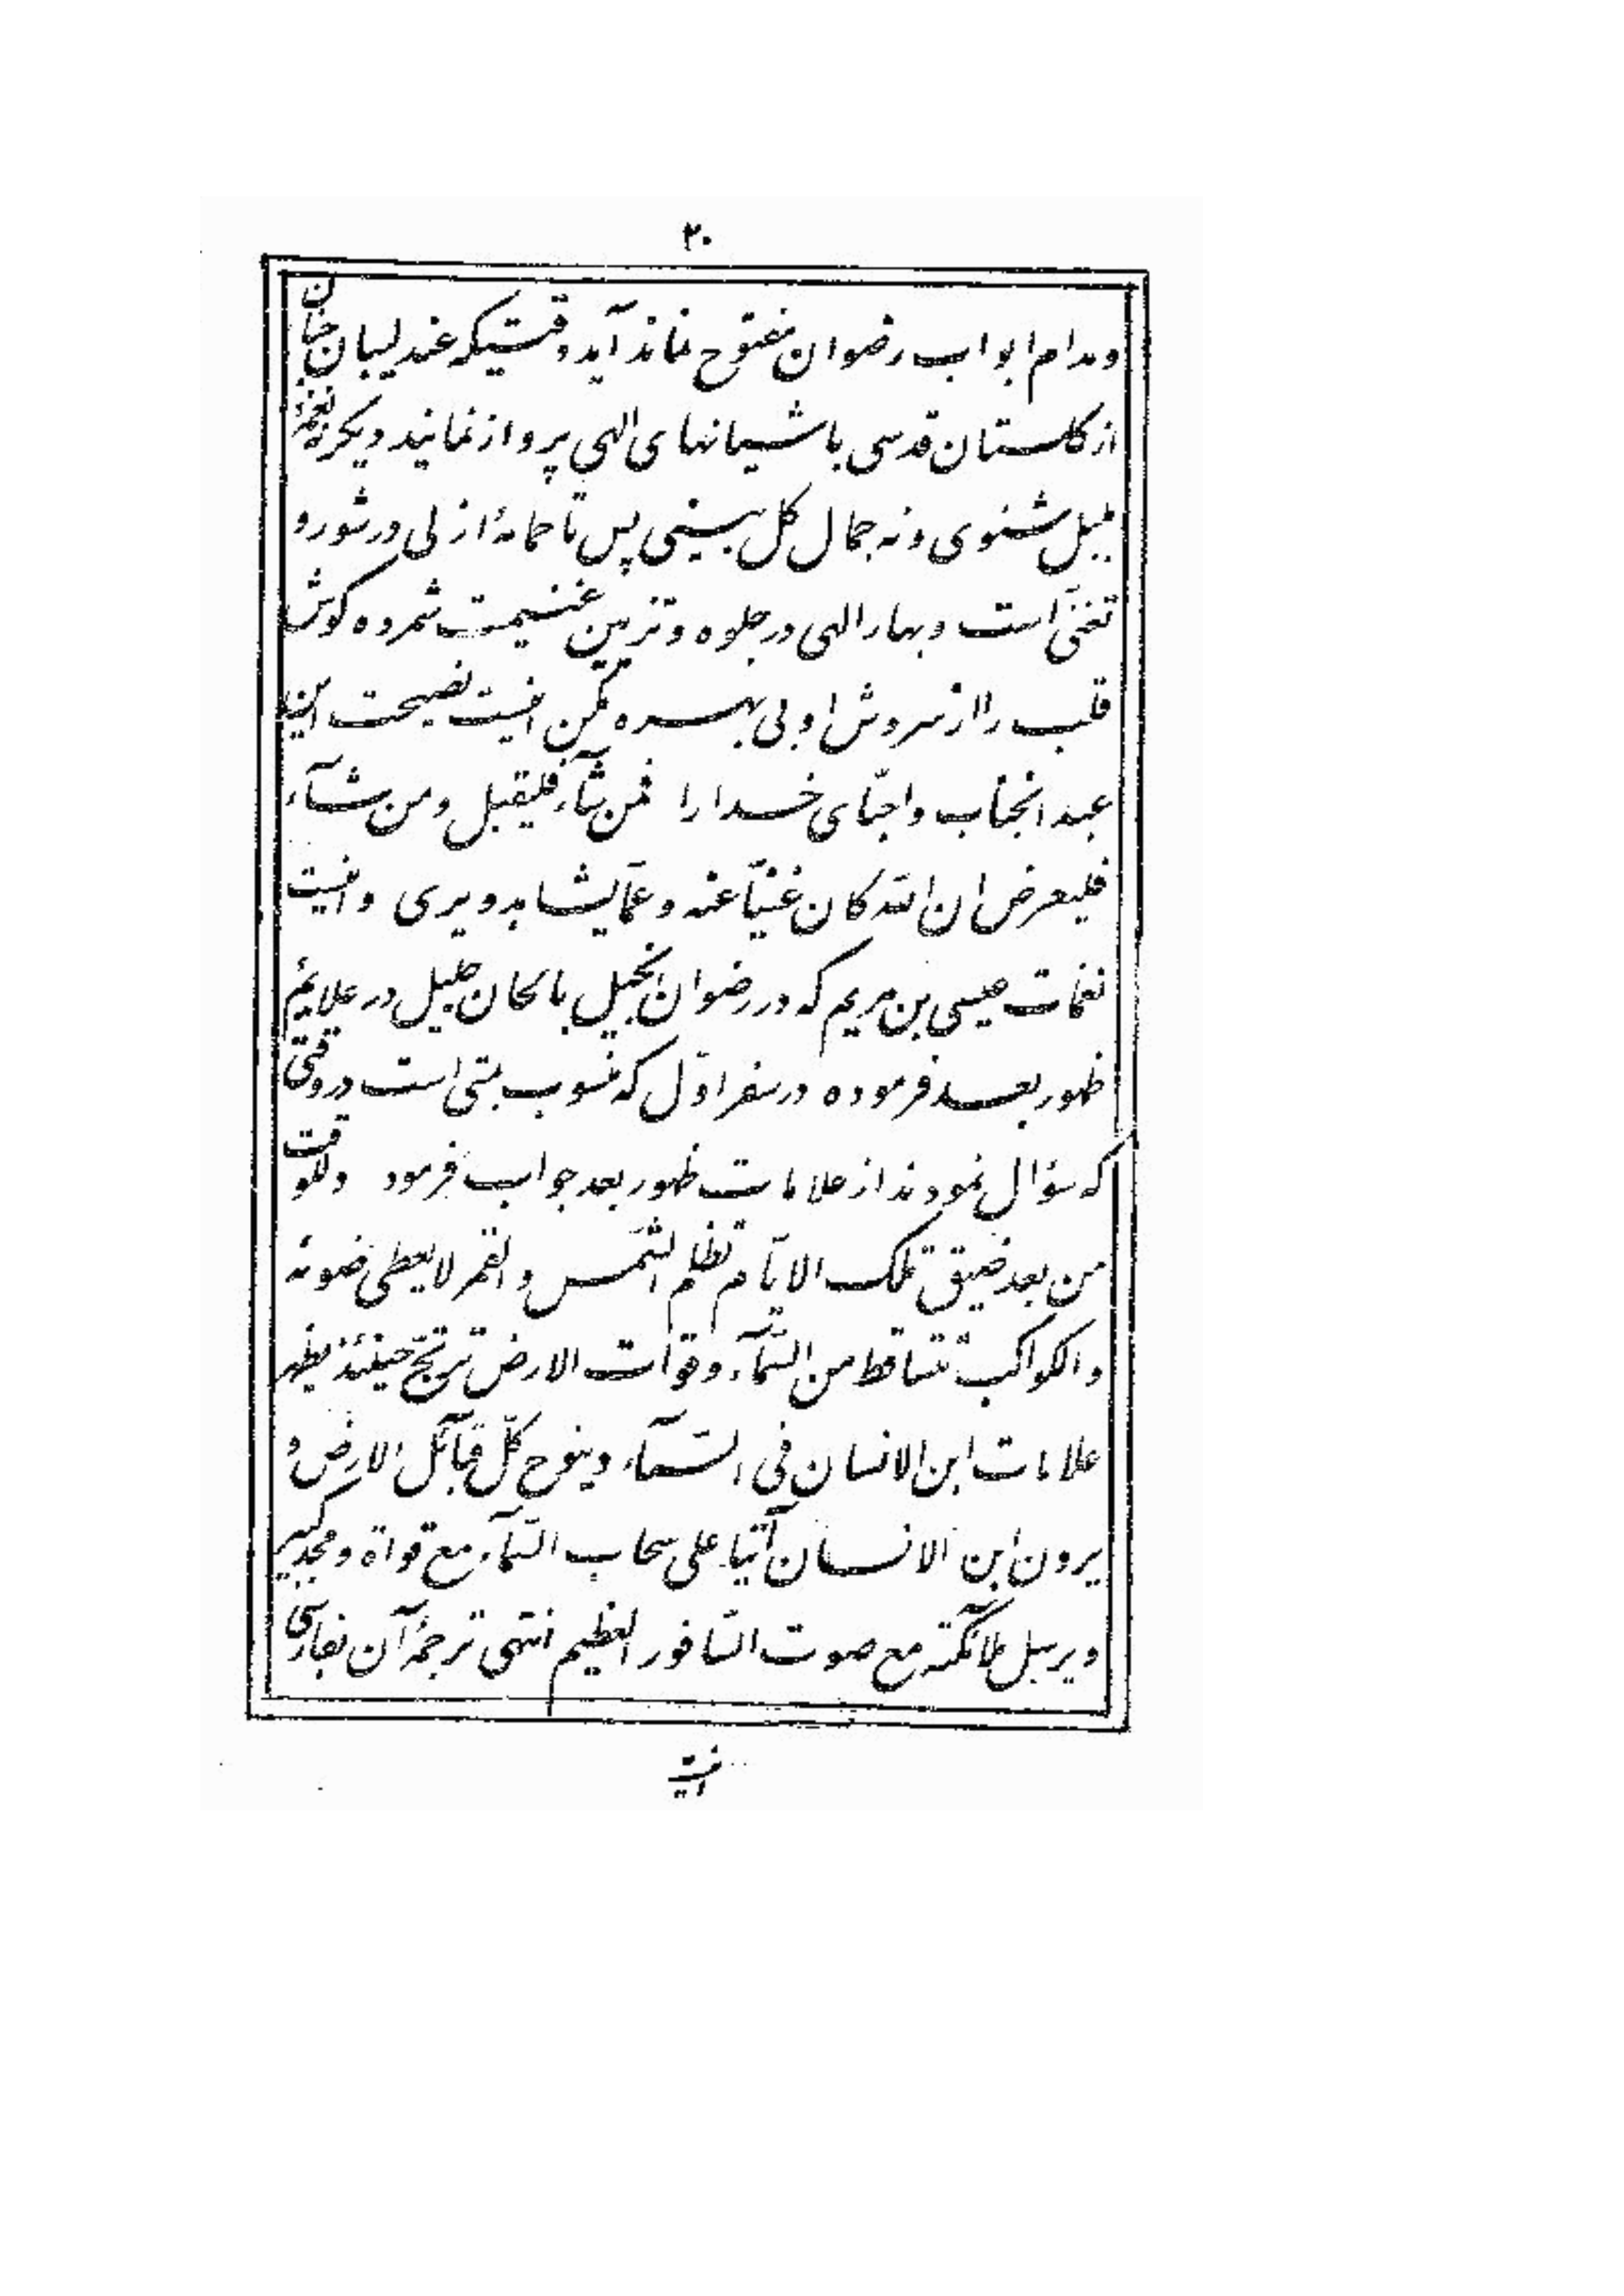 ۲۰
و مدام ابواب رضوان مفتوح نماند آید وقتیکه عندلیبان جنان
از کلستان قدسی باشیانهای الهی پرواز نمایند دیکر نه نغمهٔ
بلبل شنوی و نه جمال کل بینی پس تا حمامهٔ ازلی در شور و
تغنّی است و بهار الهی در جلوه و تزیین غنیمت شمرده کوش
قلب را از سروش او بی بهره مکن اینست نصیحت این
عبد انجناب و احبّای خدا را فمن شآء فلیقبل و من شآء
فلیعرض ان اللّه کان غنیّاً عنه و عمّا یشاهد و یری و اینست
نغمات عیسی بن مریم که در رضوان انجیل بالحان جلیل در علایم
ظهور بعد فرموده در سفر اوّل که منسوب بمتی است در وقتی
که سؤال نمودند از علامات ظهور بعد جواب فرمود و للوقت
من بعد ضیق تلک الایّام تظلم الشّمس و القمر لا یعطی ضوئه
و الکواکب تتساقط من السّمآء و قوّات الارض ترتجّ حینئذ یظهر
علامات ابن الانسان فی السّمآء و ینوح کلّ قبآئل الارض و
یرون ابن الانسان آتیا علی سحاب السّمآء مع قواة و مجد کبیر
و یرسل ملآئکته مع صوت السّافور العظیم انتهی ترجمهٔ آن بفارسی
اینست